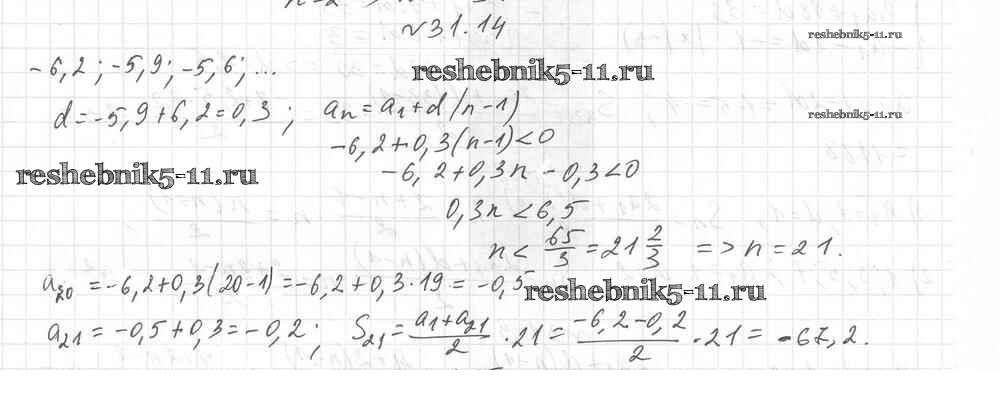 №31.14
reshebnik5-11.ru
-6,2; -5,9; -5,6; ...
reshebnik5-11.ru
d = -5,9+6,2=0,3; aₙ=a₁+d(n-1)
reshebnik5-11.ru
-6,2+0,3(n-1)<0
reshebnik5-11.ru
-6,2+0,3n-0,3<0
0,3n<6,5
n< 65/3 =21 2/3 => n=21.
a₂₀ =-6,2+0,3(20-1)=-6,2+0,3·19= -0,5
reshebnik5-11.ru
a₂₁=-0,5+0,3=-0,2; S₂₁= a₁+a₂₁/2 ·21= -6,2-0,2/2 ·21= -67,2.